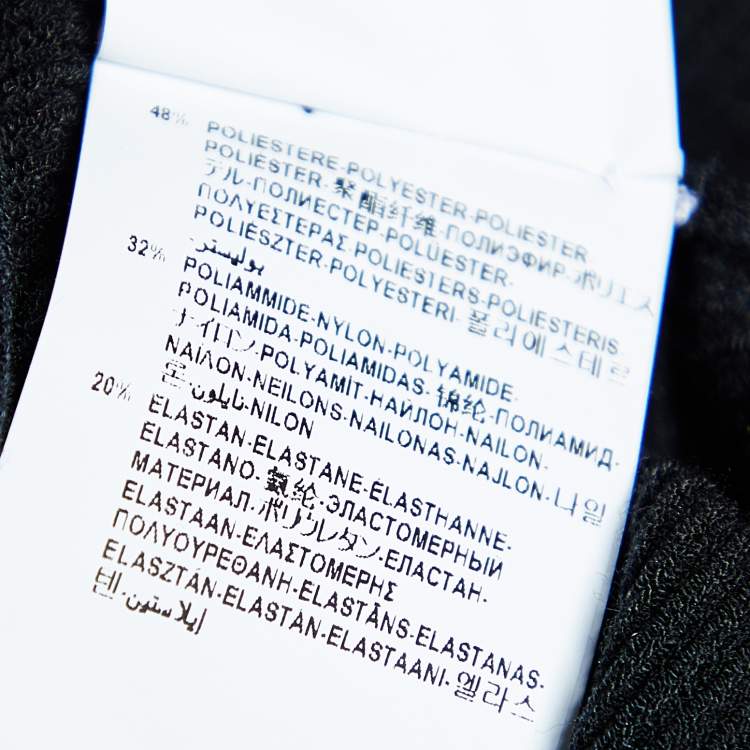 48% POLIESTERE-POLYESTER-POLIESTER
POLIÉSTER-聚酯纤维-ПОЛИЭФИР-ポリエス
テル-ПОЛИЕСТЕР-POLÜESTER-
ΠΟΛΥΕΣΤΕΡΑΣ-POLIESTERS-POLIESTERIS
POLIÉSZTER-POLYESTERI-폴리에스테르
بوليستر-
32% POLIAMMIDE-NYLON-POLYAMIDE-
POLIAMIDA-POLIAMIDAS-锦纶-ПОЛИАМИД-
ナイロン-POLYAMIT-НАЙЛОН-NAILON-
ΝΑΙΛΟΝ-NEILONS-NAILONAS-NAJLON-나일
론-نايلون-NILON
20% ELASTAN-ELASTANE-ÉLASTHANNE-
ELASTANO-氨纶-ЭЛАСТОМЕРНЫЙ
МАТЕРИАЛ-ポリウレタン-ЕЛАСТАН-
ELASTAAN-ΕΛΑΣΤΟΜΕΡΗΣ
ΠΟΛΥΟΥΡΕΘΑΝΗ-ELASTĀNS-ELASTANAS-
ELASZTÁN-ELASTAN-ELASTAANI-엘라스
텐-إيلاستين